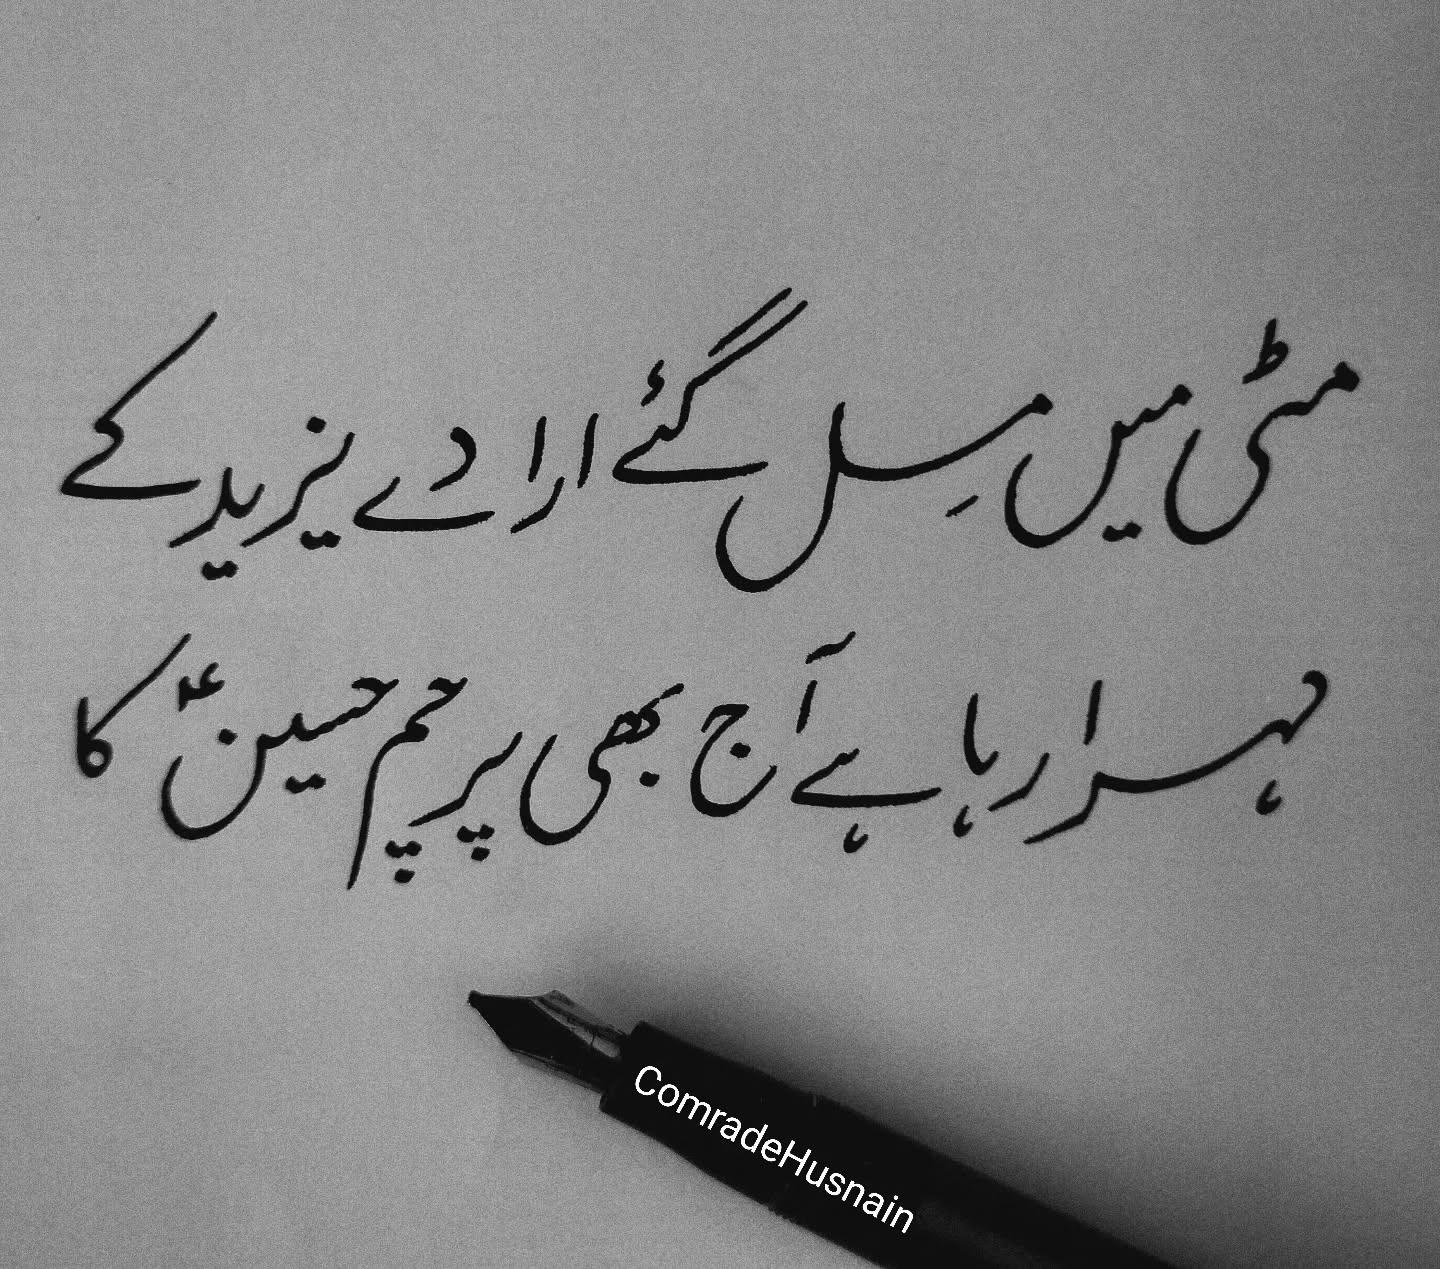 مٹی میں مِل گئے ارادے یزید کے
لہرا رہا ہے آج بھی پرچم حسینؑ کا
ComradeHusnain